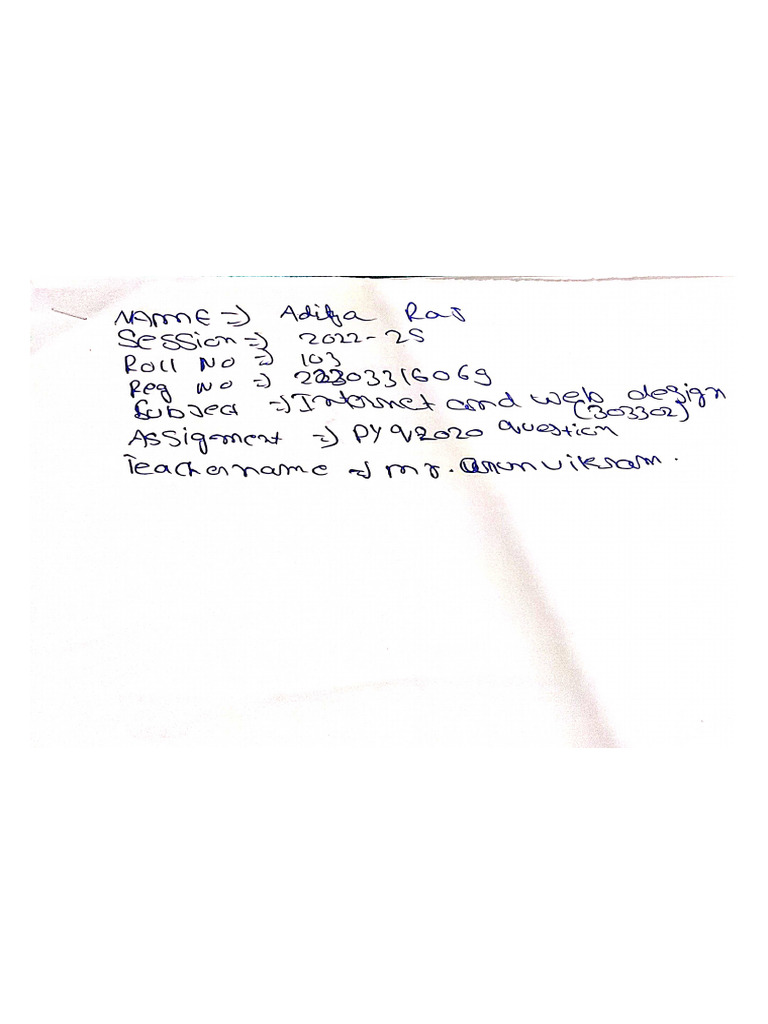 NAME => Aditya Raj
Session => 2022-25
Roll No => 103
Reg No => 22303316069
Subject => Internet and web design
(303302)
Assignment => PYQ 2020 Question
Teacher name => mr. Arun vikram.